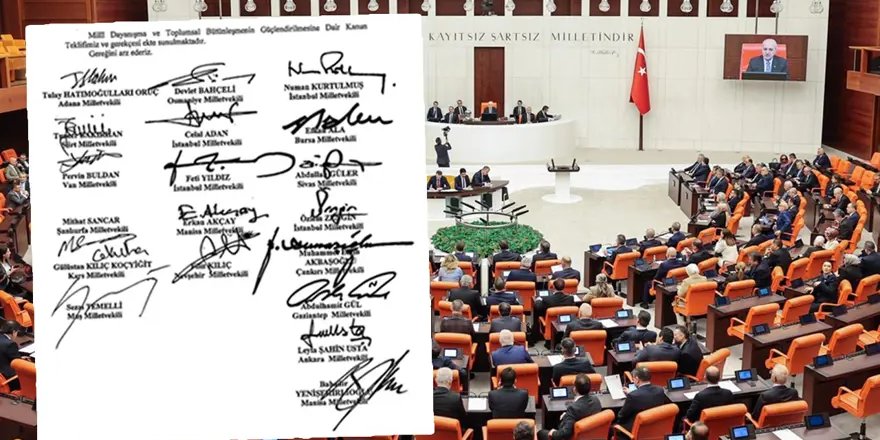 Milli Dayanışma ve Toplumsal Bütünleşmenin Güçlendirilmesine Dair Kanun
Teklifimiz ve gerekçesi ekte sunulmaktadır.
Gereğini arz ederiz.
Tulay HATIMOĞULLARI ORUÇ
Adana Milletvekili
Devlet BAHÇELİ
Osmaniye Milletvekili
Numan KURTULMUŞ
İstanbul Milletvekili
Siirt Milletvekili
Celal ADAN
İstanbul Milletvekili
ALA
Bursa Milletvekili
Pervin BULDAN
Van Milletvekili
Feti YILDIZ
İstanbul Milletvekili
Abdullah GÜLER
Sivas Milletvekili
Mithat SANCAR
Şanlıurfa Milletvekili
Erkan AKÇAY
Manisa Milletvekili
İstanbul Milletvekili
Gülüstan KILIÇ KOÇYİĞİT
Kars Milletvekili
KILIÇ
Nevşehir Milletvekili
Muhammet
AKBAŞOĞLU
Çankırı Milletvekili
Sezai TEMELLİ
Muş Milletvekili
Abdulhamit GÜL
Gaziantep Milletvekili
Leyla ŞAHİN USTA
Ankara Milletvekili
Bahadır
YENİŞEHİRLİOĞLU
Manisa Milletvekili
KAYITSIZ ŞARTSIZ MİLLETİNDİR